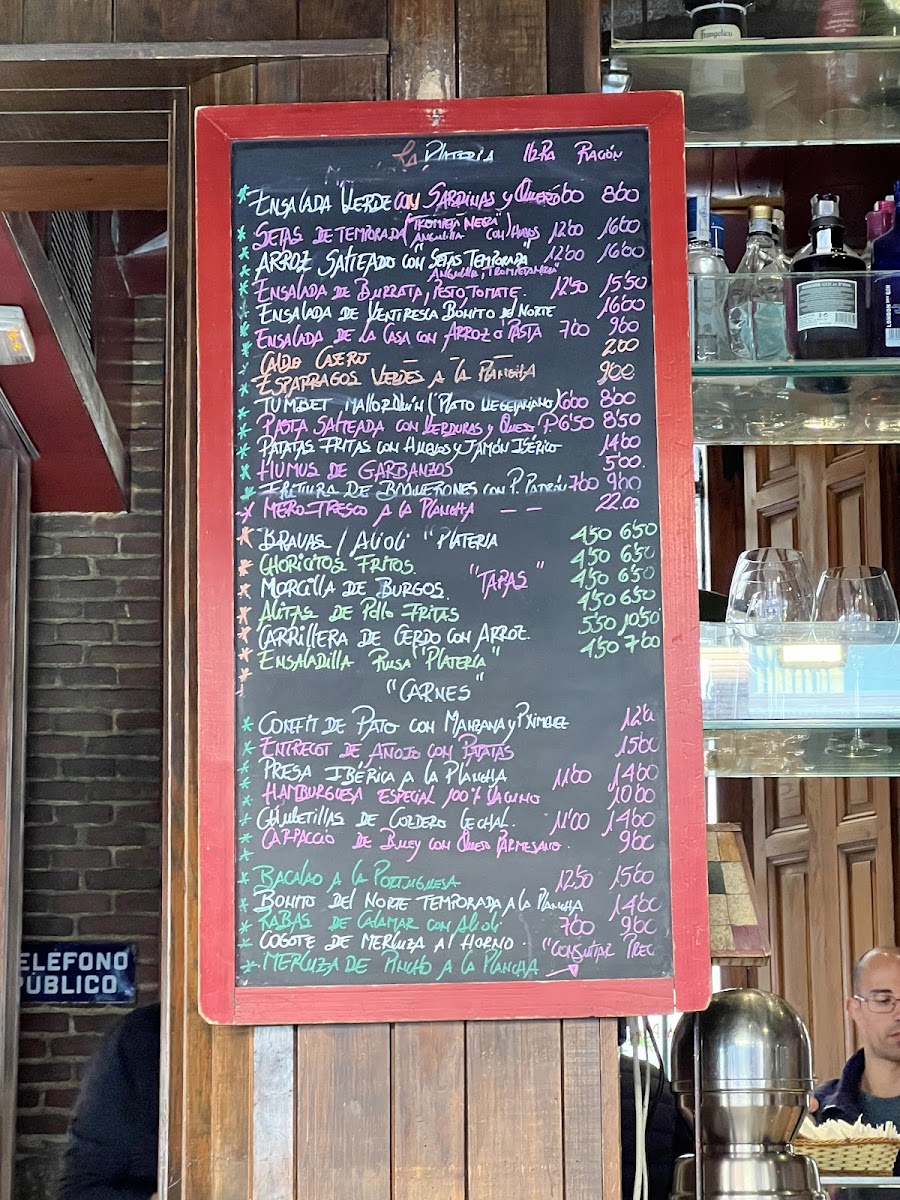 Frangelico
La PLATERIA 1/2RA RACIÓN
* ENSALADA VERDE CON SARDINAS y QUESO 6'00 8'00
* SETAS DE TEMPORADA (TROMPETA NEGRA ANGUILA CON HUEVOS) 12'00 16'00
* ARROZ SALTEADO CON "SETAS TEMPORADA" 12'00 16'00
* ENSALADA DE BURRATA, PESTO, TOMATE. 12'50 15'50
* ENSALADA DE VENTRESCA BONITO DEL NORTE 16'00
* ENSALADA DE LA CASA CON ARROZ O PASTA 7'00 9'00
* CALDO CASERO 2'00
* ESPARRAGOS VERDES A LA PLANCHA 9'00
* TUMBET MALLORQUÍN (PLATO VEGETARIANO) 6'00 8'00
* PASTA SALTEADA CON VERDURAS y QUESO P 6'50 8'50
* PATATAS FRITAS CON HUEVOS y JAMÓN IBÉRICO 14'00
* HUMUS DE GARBANZOS 5'00.
* FRITURA DE BOQUERONES CON P. PADRÓN 7'00 9'00
* MERO FRESCO A LA PLANCHA -- 22.00
* BRAVAS / ALIOLI "PLATERIA 4'50 6'50
* CHORICITOS FRITOS. 4'50 6'50
"TAPAS"
* MORCILLA DE BURGOS. 4'50 6'50
* ALITAS DE POLLO FRITAS 4'50 6'50
* CARRILLERA DE CERDO CON ARROZ. 5'50 10'50
* ENSALADILLA RUSA "PLATERIA" 4'50 7'00
"CARNES"
* CONFIT DE PATO CON MANZANA y P.XIMENEZ 12'00
* ENTRECOT DE AÑOJO CON PATATAS 15'00
* PRESA IBÉRICA A LA PLANCHA 11'00 14'00
* HAMBURGUESA ESPECIAL 100% VACUNO 10'00
* CHULETILLAS DE CORDERO LECHAL. 11'00 14'00
* CARPACCIO DE BUEY CON QUESO PARMESANO. 9'00
* BACALAO A LA PORTUGUESA 12'50 15'00
* BONITO DEL NORTE TEMPORADA A LA PLANCHA 14'00
* RABAS DE CALAMAR CON ALIOLI 7'00 9'00
* COGOTE DE MERLUZA AL HORNO. "CONSULTAR PREC
* MERLUZA DE PINCHO A LA PLANCHA
ELÉFONO
PÚBLICO